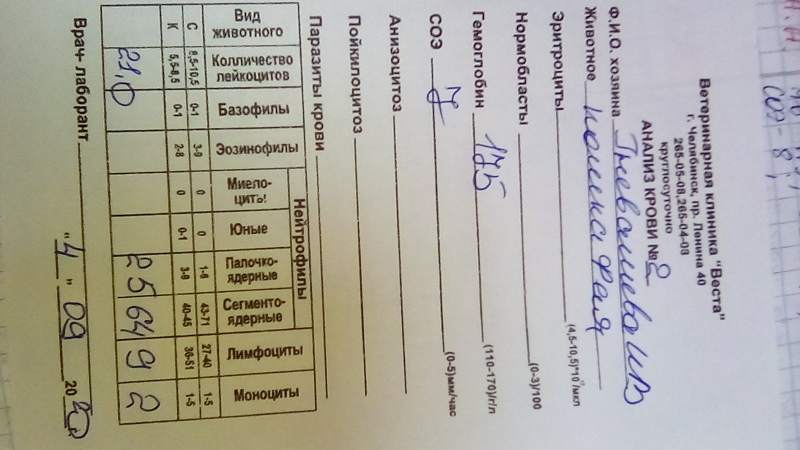 Ветеринарная клиника "Веста"
г. Челябинск, пр. Ленина 40
265-05-08, 265-04-08
круглосуточно
АНАЛИЗ КРОВИ № 2
Ф.И.О. хозяина
Животное кошка Фая
Эритроциты (4,5-10,5)*10⁶/мкл
Нормобласты (0-3)/100
Гемоглобин 175 (110-170)/г/л
СОЭ 7 (0-5)мм/час
Анизоцитоз
Пойкилоцитоз
Паразиты крови
Вид животного Колличество лейкоцитов Базофилы Эозинофилы Нейтрофилы Лимфоциты Моноциты
Миелоциты Юные Палочкоядерные Сегментоядерные
С 8,5-10,5 0-1 3-9 0 0 1-6 43-71 27-40 1-5
К 5,5-8,5 0-1 2-8 0 0-1 3-9 40-45 36-51 1-5
21,0 25 64 9 2
Врач- лаборант "4" 09 20
СОЭ - 8